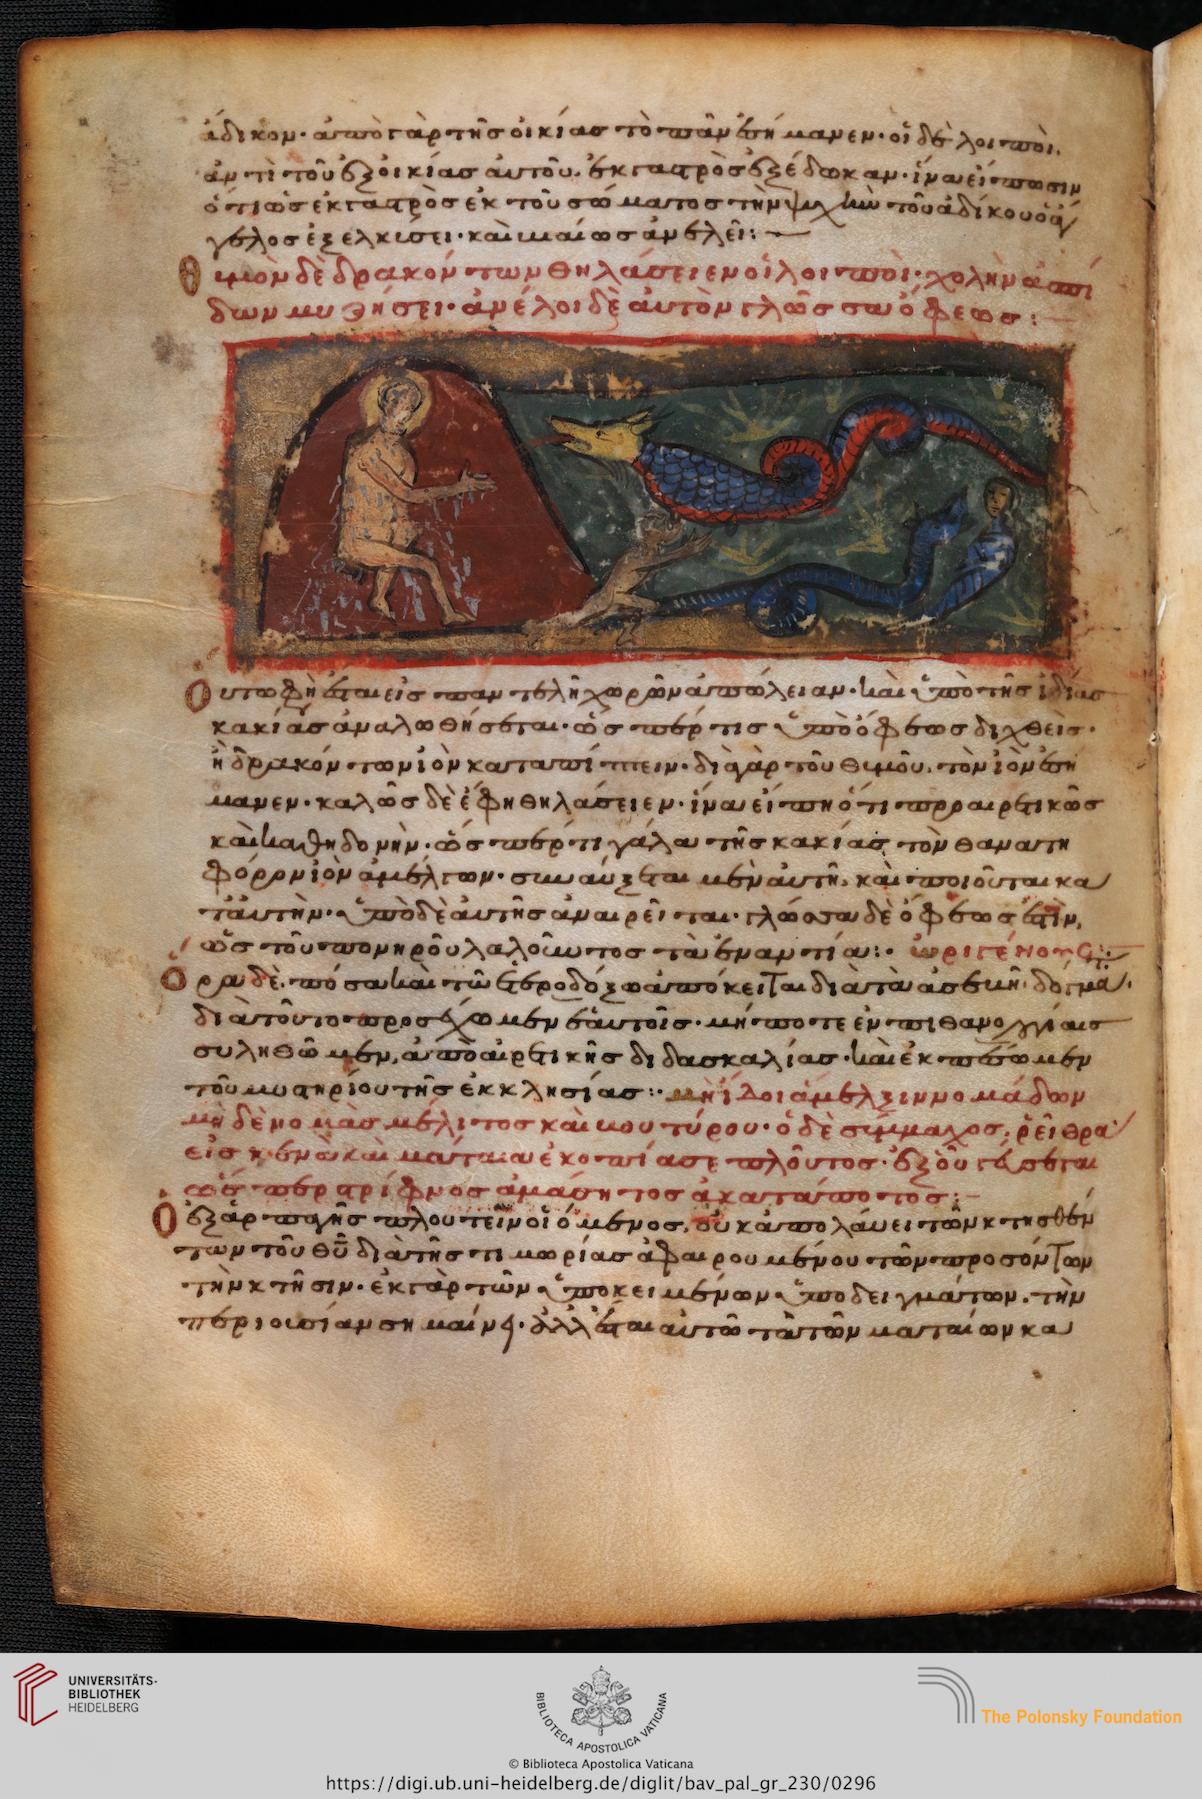 ἄδικον· ἀπὸ γὰρ τῆς οἰκίας τὸ πᾶν ἐσήμανεν· οἱ δὲ λοιποὶ.
ἀντὶ τοῦ ἐξ οἰκίας αὐτοῦ. ἐκ γαστρὸς ἐξέδωκαν· ἵνα εἴπωσιν
ὅτι ὡς ἐκ γαστρὸς ἐκ τοῦ σώματος τὴν ψυχὴν τοῦ ἀδίκου ὁ ἄγ
γελος ἐξελκύσει· καὶ βιαίως ἀνελεῖ:
Θυμὸν δὲ δρακόντων θηλάσειεν οἱ λοιποὶ· χολὴν ἀσπί
δων μυζήσει· ἀνέλοι δὲ αὐτὸν γλῶσσα ὄφεως:
Οὕτω φὴ ἔσται εἰς παντελῆ χωρῶν ἀπώλειαν· καὶ ὑπὸ τῆς ἰδίας
κακίας ἀναλωθήσεται· ὥσπερ τις ὑπὸ ὄφεως διχθεὶς·
ἢ δρακόντων ἰὸν καταπίπτειν· διὰ γὰρ τοῦ θυμοῦ. τὸν ἰὸν ἐσή
μανεν· καλῶς δὲ ἔφη θηλάσειεν· ἵνα εἴπη ὅτι προαιρετικῶς
καὶ καθ ηδονὴν· ὥσπερ τι γάλα τῆς κακίας τὸν θανατη
φόρον ἰὸν ἀμέλγων· συναύξεται μὲν αὐτῆ, καὶ ποιοῦται κα
τ αὐτὴν· ὑπὸ δὲ αὐτῆς ἀναιρεῖται· γλώσσα δὲ ὄφεως ἐστὶν,
ὡς τοῦ πονηροῦ λαλοῦντος τὰ ἐναντία:· ὠριγένους:
Ὅρα δὲ. πόσα καὶ τῶ ἑτεροδόξω ἀπόκειται διὰ τὰ ἀσεβῆ δόγματα.
διὰ τοῦτο προσέχωμεν ἑαυτοῖς· μή ποτε ἐν πιθανολογίαις
συληθῶμεν, ἀπὸ αἱρετικῆς διδασκαλίας· καὶ ἐκπέσωμεν
τοῦ μυστηρίου τῆς ἐκκλησίας:· μὴ ἴδοι ἄμελξιν νομάδων
μὴ δὲ νομὰς μέλιτος καὶ βουτύρου· ὁ δὲ σύμμαχος, ῥεῖθρα
εἰς κενὰ καὶ μάταια ἐκοπίασε πλοῦτος· ἐξ οὗ γεύσεται
ὥσπερ στρίφνος ἀμάσητος ἀκατάποτος:
Ὁ ἐξ ἁρπαγῆς πλουτεῖν οἰόμενος, οὐκ ἀπολάυει τῶν κτηθέν
των τοῦ θῦ διὰ τῆς τιμωρίας ἀφαιρουμένου τῶν προσόντων
τὴν κτῆσιν· ἐκ γὰρ τῶν ὑποκειμένων ὑποδειγμάτων. τὴν
περιουσίαν σημαίνει· ἀλλ ἔσται αὐτῶ τὰ τῶν ματαίων κα
UNIVERSITÄTS-
BIBLIOTHEK
HEIDELBERG
BIBLIOTECA APOSTOLICA VATICANA
The Polonsky Foundation
© Biblioteca Apostolica Vaticana
https://digi.ub.uni-heidelberg.de/diglit/bav_pal_gr_230/0296